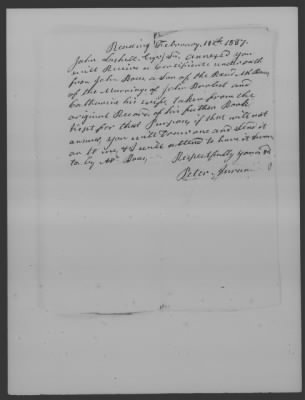 Reading February, 18th, 1837.
John Esqr, Sir, annexed you
will Receive a Certificate underoath
from John Boas, a Son of the Revd.
of the Marriage of John and
Catharine his wife taken from the
original Record of his father Book
kept for that Purpose, if that will not
answer, you will one and Send it
on to me, & I will attend to have it Sworn
to by Mr Boas,
Respectfully yours &c
Peter